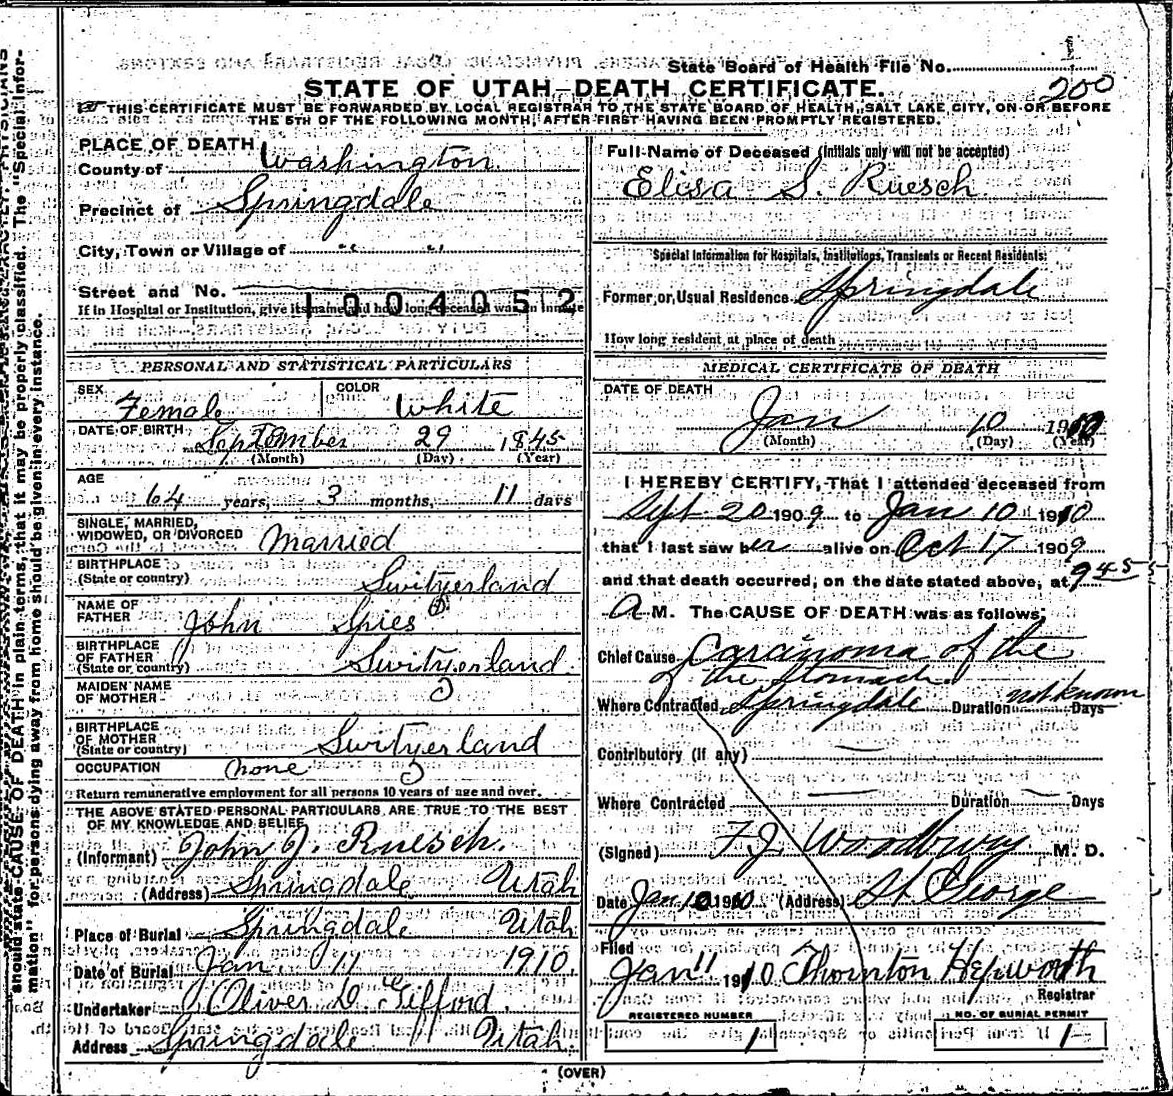 State Board of Health File No.
200
STATE OF UTAH—DEATH CERTIFICATE.
THIS CERTIFICATE MUST BE FORWARDED BY LOCAL REGISTRAR TO THE STATE BOARD OF HEALTH, SALT LAKE CITY, ON OR BEFORE
THE 5TH OF THE FOLLOWING MONTH, AFTER FIRST HAVING BEEN PROMPTLY REGISTERED.
PLACE OF DEARTH
County of Washington
Precinct of Springdale
City, Town or Village of " "
Street and No.
1004052
If in Hospital or Institution, give its name and how long deceased was an inmate
PERSONAL AND STATISTICAL PARTICULARS
SEX Female COLOR White
DATE OF BIRTH September 29 1845
(Month) (Day) (Year)
AGE
64 years, 3 months, 11 days
SINGLE, MARRIED,
WIDOWED, OR DIVORCED Married
BIRTHPLACE
(State or country) Switzerland
NAME OF
FATHER John Spies
BIRTHPLACE
OF FATHER
(State or country) Switzerland
MAIDEN NAME
OF MOTHER
BIRTHPLACE
OF MOTHER
(State or country) Switzerland
OCCUPATION none
Return remunerative employment for all persons 10 years of age and over.
THE ABOVE STATED PERSONAL PARTICULARS ARE TRUE TO THE BEST
OF MY KNOWLEDGE AND BELIEF
(Informant) John J. Ruesch.
(Address) Springdale Utah
Place of Burial Springdale Utah
Date of Burial Jan 11 1910
Undertaker Oliver D. Gifford.
Address Springdale Utah
Full Name of Deceased (Initials only will not be accepted)
Elisa S. Ruesch
Special Information for Hospitals, Institutions, Transients or Recent Residents:
Former or Usual Residence Springdale
How long resident at place of death
MEDICAL CERTIFICATE OF DEATH
DATE OF DEATH
Jan 10 1910
(Month) (Day) (Year)
I HEREBY CERTIFY, That I attended deceased from
Sept 20 1909 to Jan 10 1910
that I last saw her alive on Oct 17 1909
and that death occurred, on the date stated above, at 9 45
A M. The CAUSE OF DEATH was as follows:
Chief Cause Carcinoma of the
of the Stomach.
Where Contracted Springdale Duration not known Days
Contributory (if any)
Where Contracted Duration Days
(Signed) F. J. Woodbury M. D.
Date Jan 10 1910 (Address) St George
Filed
Jan 11 1910 Thornton Hepworth
Registrar
REGISTERED NUMBER
1
NO. OF BURIAL PERMIT
1
(OVER)
should state CAUSE OF DEATH in plain terms, that it may be properly classified. The "Special Infor-
mation" for persons dying away from home should be given in every instance.